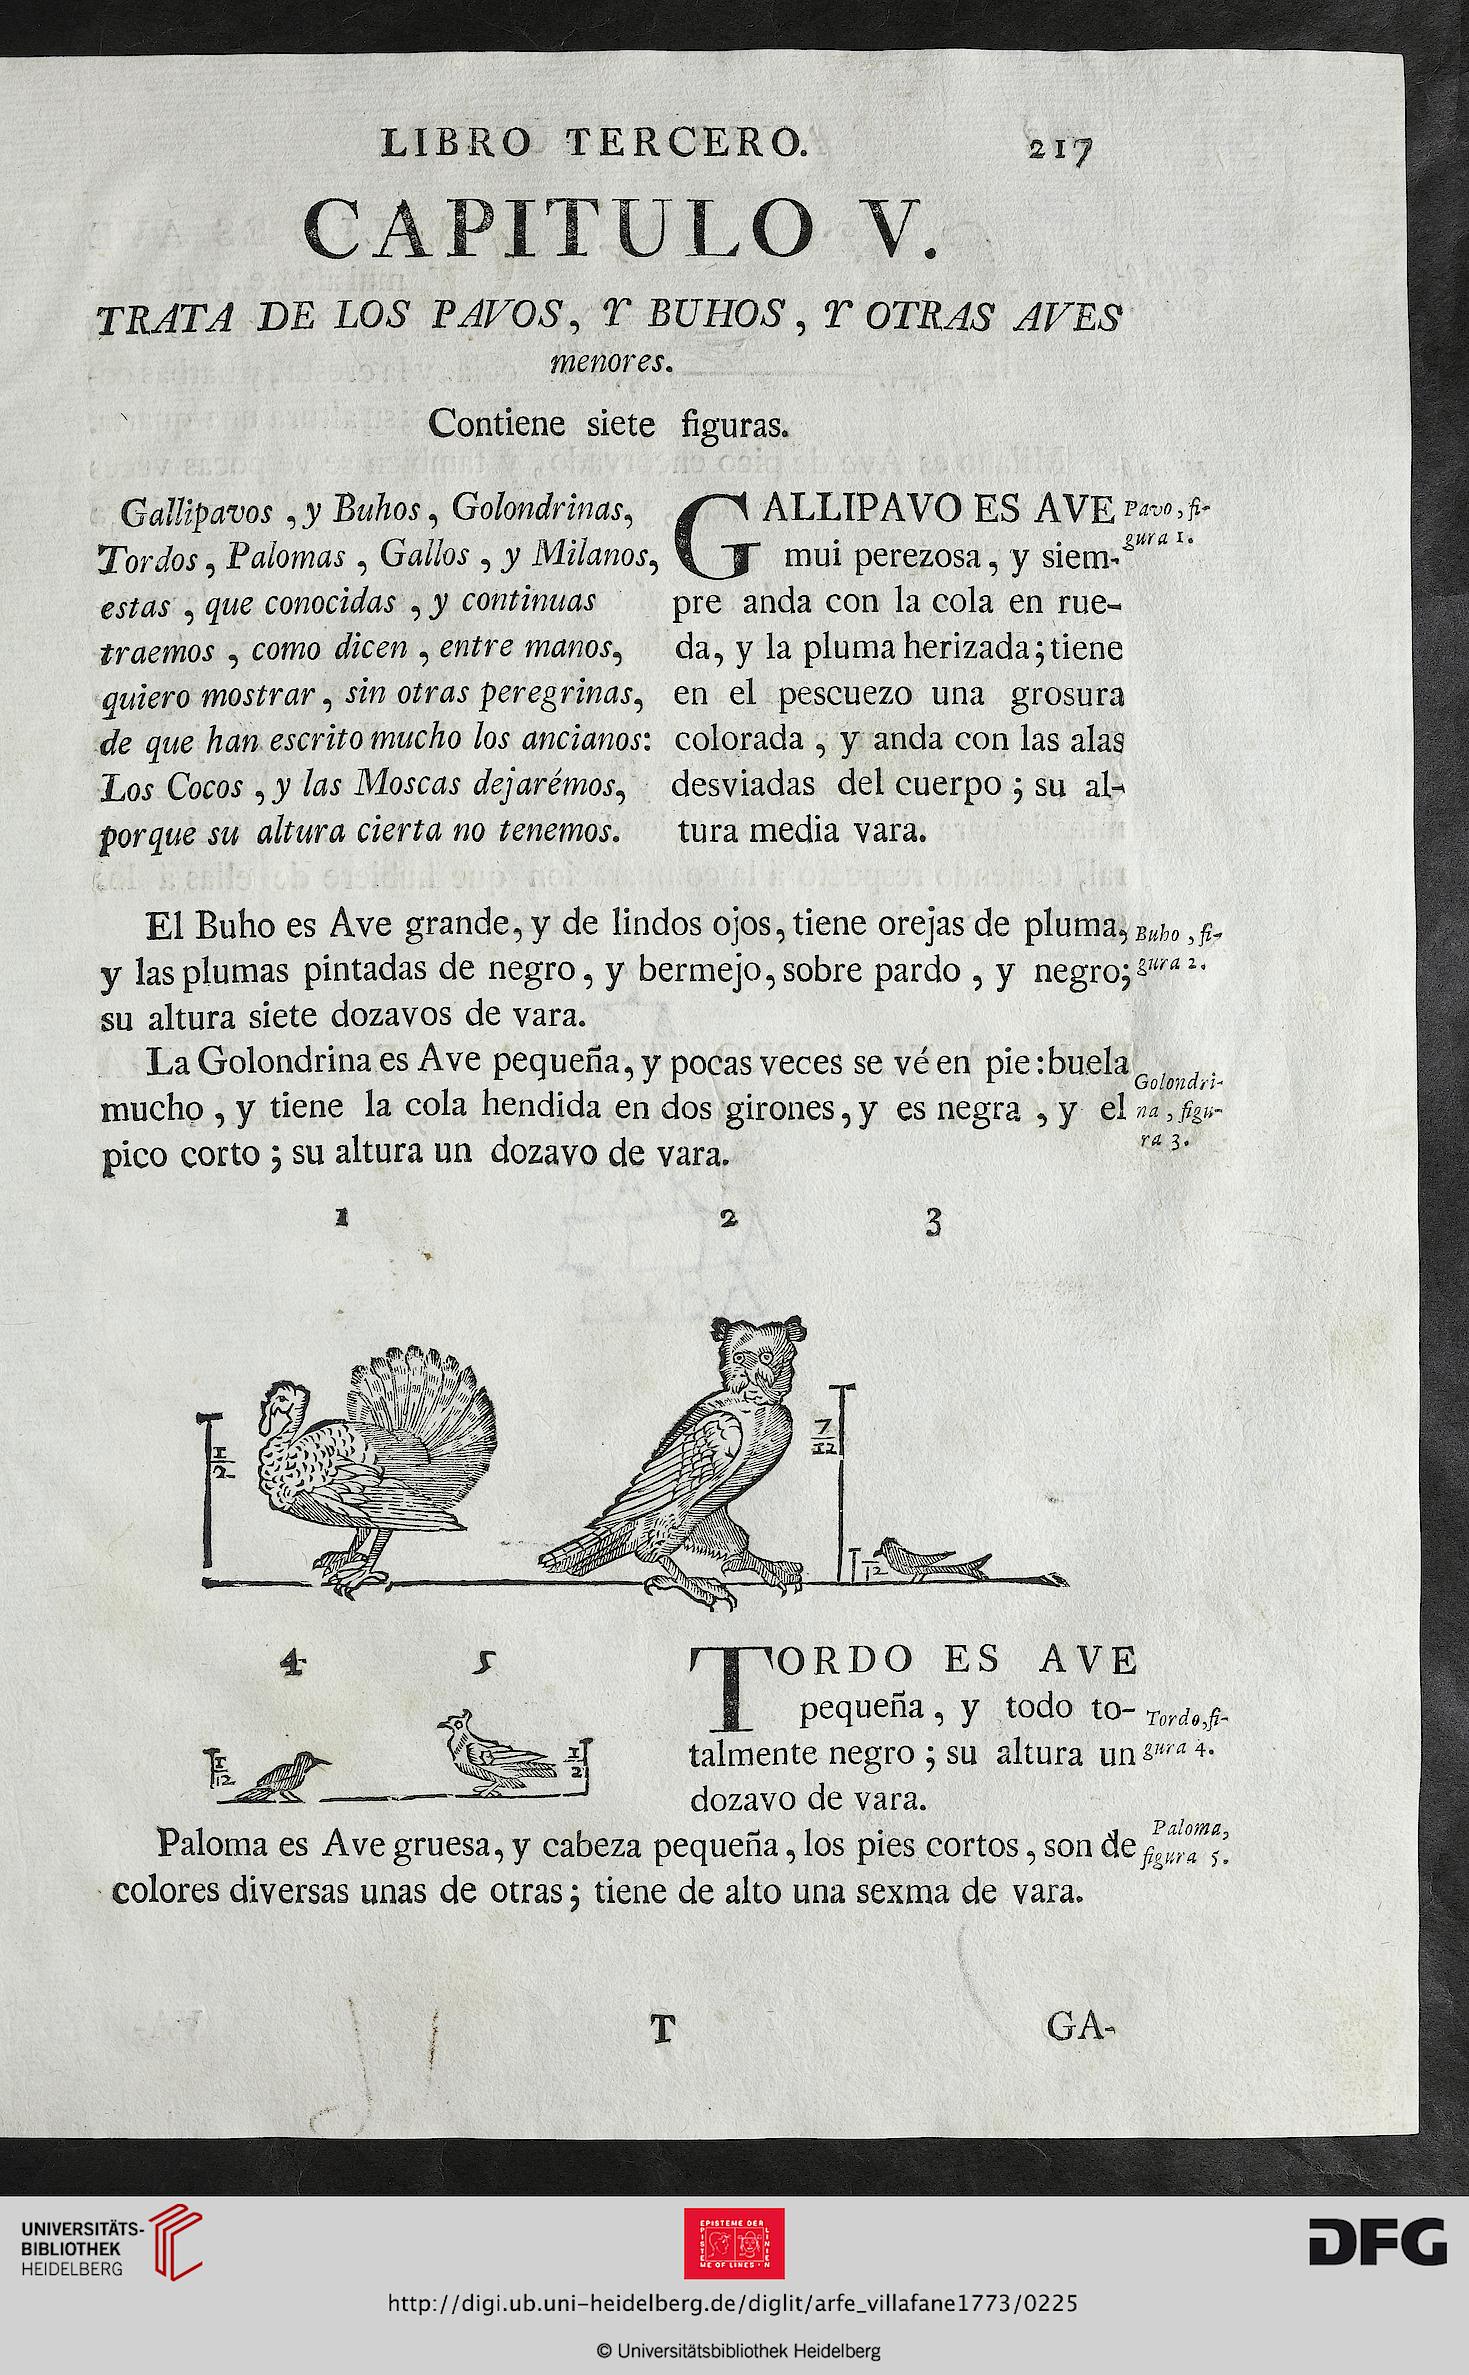 LIBRO TERCERO. 217
CAPITULO V.
TRATA DE LOS PAVOS, Y BUHOS, Y OTRAS AVES
menores.
Contiene siete figuras.
Gallipavos , y Buhos , Golondrinas,
Tordos , Palomas , Gallos , y Milanos,
estas , que conocidas , y continuas
traemos , como dicen , entre manos,
quiero mostrar , sin otras peregrinas,
de que han escrito mucho los ancianos:
Los Cocos , y las Moscas dejarémos,
porque su altura cierta no tenemos.
GALLIPAVO ES AVE
mui perezosa, y siem-
pre anda con la cola en rue-
da, y la pluma herizada; tiene
en el pescuezo una grosura
colorada , y anda con las alas
desviadas del cuerpo ; su al-
tura media vara.
Pavo , fi-
gura 1.
El Buho es Ave grande, y de lindos ojos, tiene orejas de pluma,
y las plumas pintadas de negro, y bermejo, sobre pardo , y negro;
su altura siete dozavos de vara.
Buho , fi-
gura 2.
La Golondrina es Ave pequeña, y pocas veces se vé en pie: buela
mucho , y tiene la cola hendida en dos girones, y es negra , y el
pico corto ; su altura un dozavo de vara.
Golondri-
na , figu-
ra 3.
1 2 3
1/2
7/12
1/12
4 5
1/12
1/2
TORDO ES AVE
pequeña , y todo to-
talmente negro ; su altura un
dozavo de vara.
Tordo, fi-
gura 4.
Paloma es Ave gruesa, y cabeza pequeña, los pies cortos, son de
colores diversas unas de otras; tiene de alto una sexma de vara.
Paloma,
figura 5.
T GA-
UNIVERSITÄTS-
BIBLIOTHEK
HEIDELBERG
EPISTEME DER
LINIEN
EPISTE
ME OF LINES
DFG
http://digi.ub.uni-heidelberg.de/diglit/arfe_villafane1773/0225
© Universitätsbibliothek Heidelberg